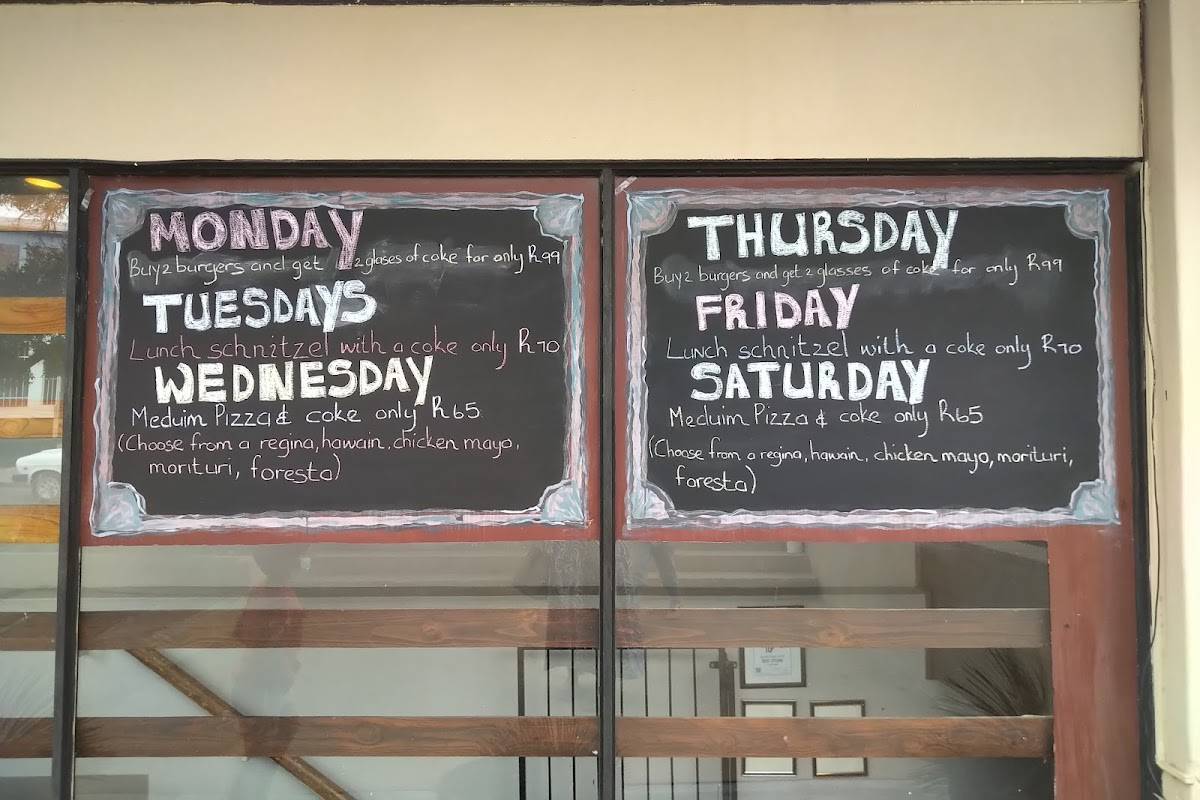 MONDAY
Buy 2 burgers and get 2 glases of coke for only R99
TUESDAYS
Lunch schnitzel with a coke only R70
WEDNESDAY
Meduim Pizza & coke only R65
(Choose from a regina, hawain, chicken mayo,
morituri, foresta)
THURSDAY
Buy 2 burgers and get 2 glasses of coke for only R99
FRIDAY
Lunch schnitzel with a coke only R70
SATURDAY
Meduim Pizza & coke only R65
(Choose from a regina, hawain, chicken mayo, morituri,
foresta)